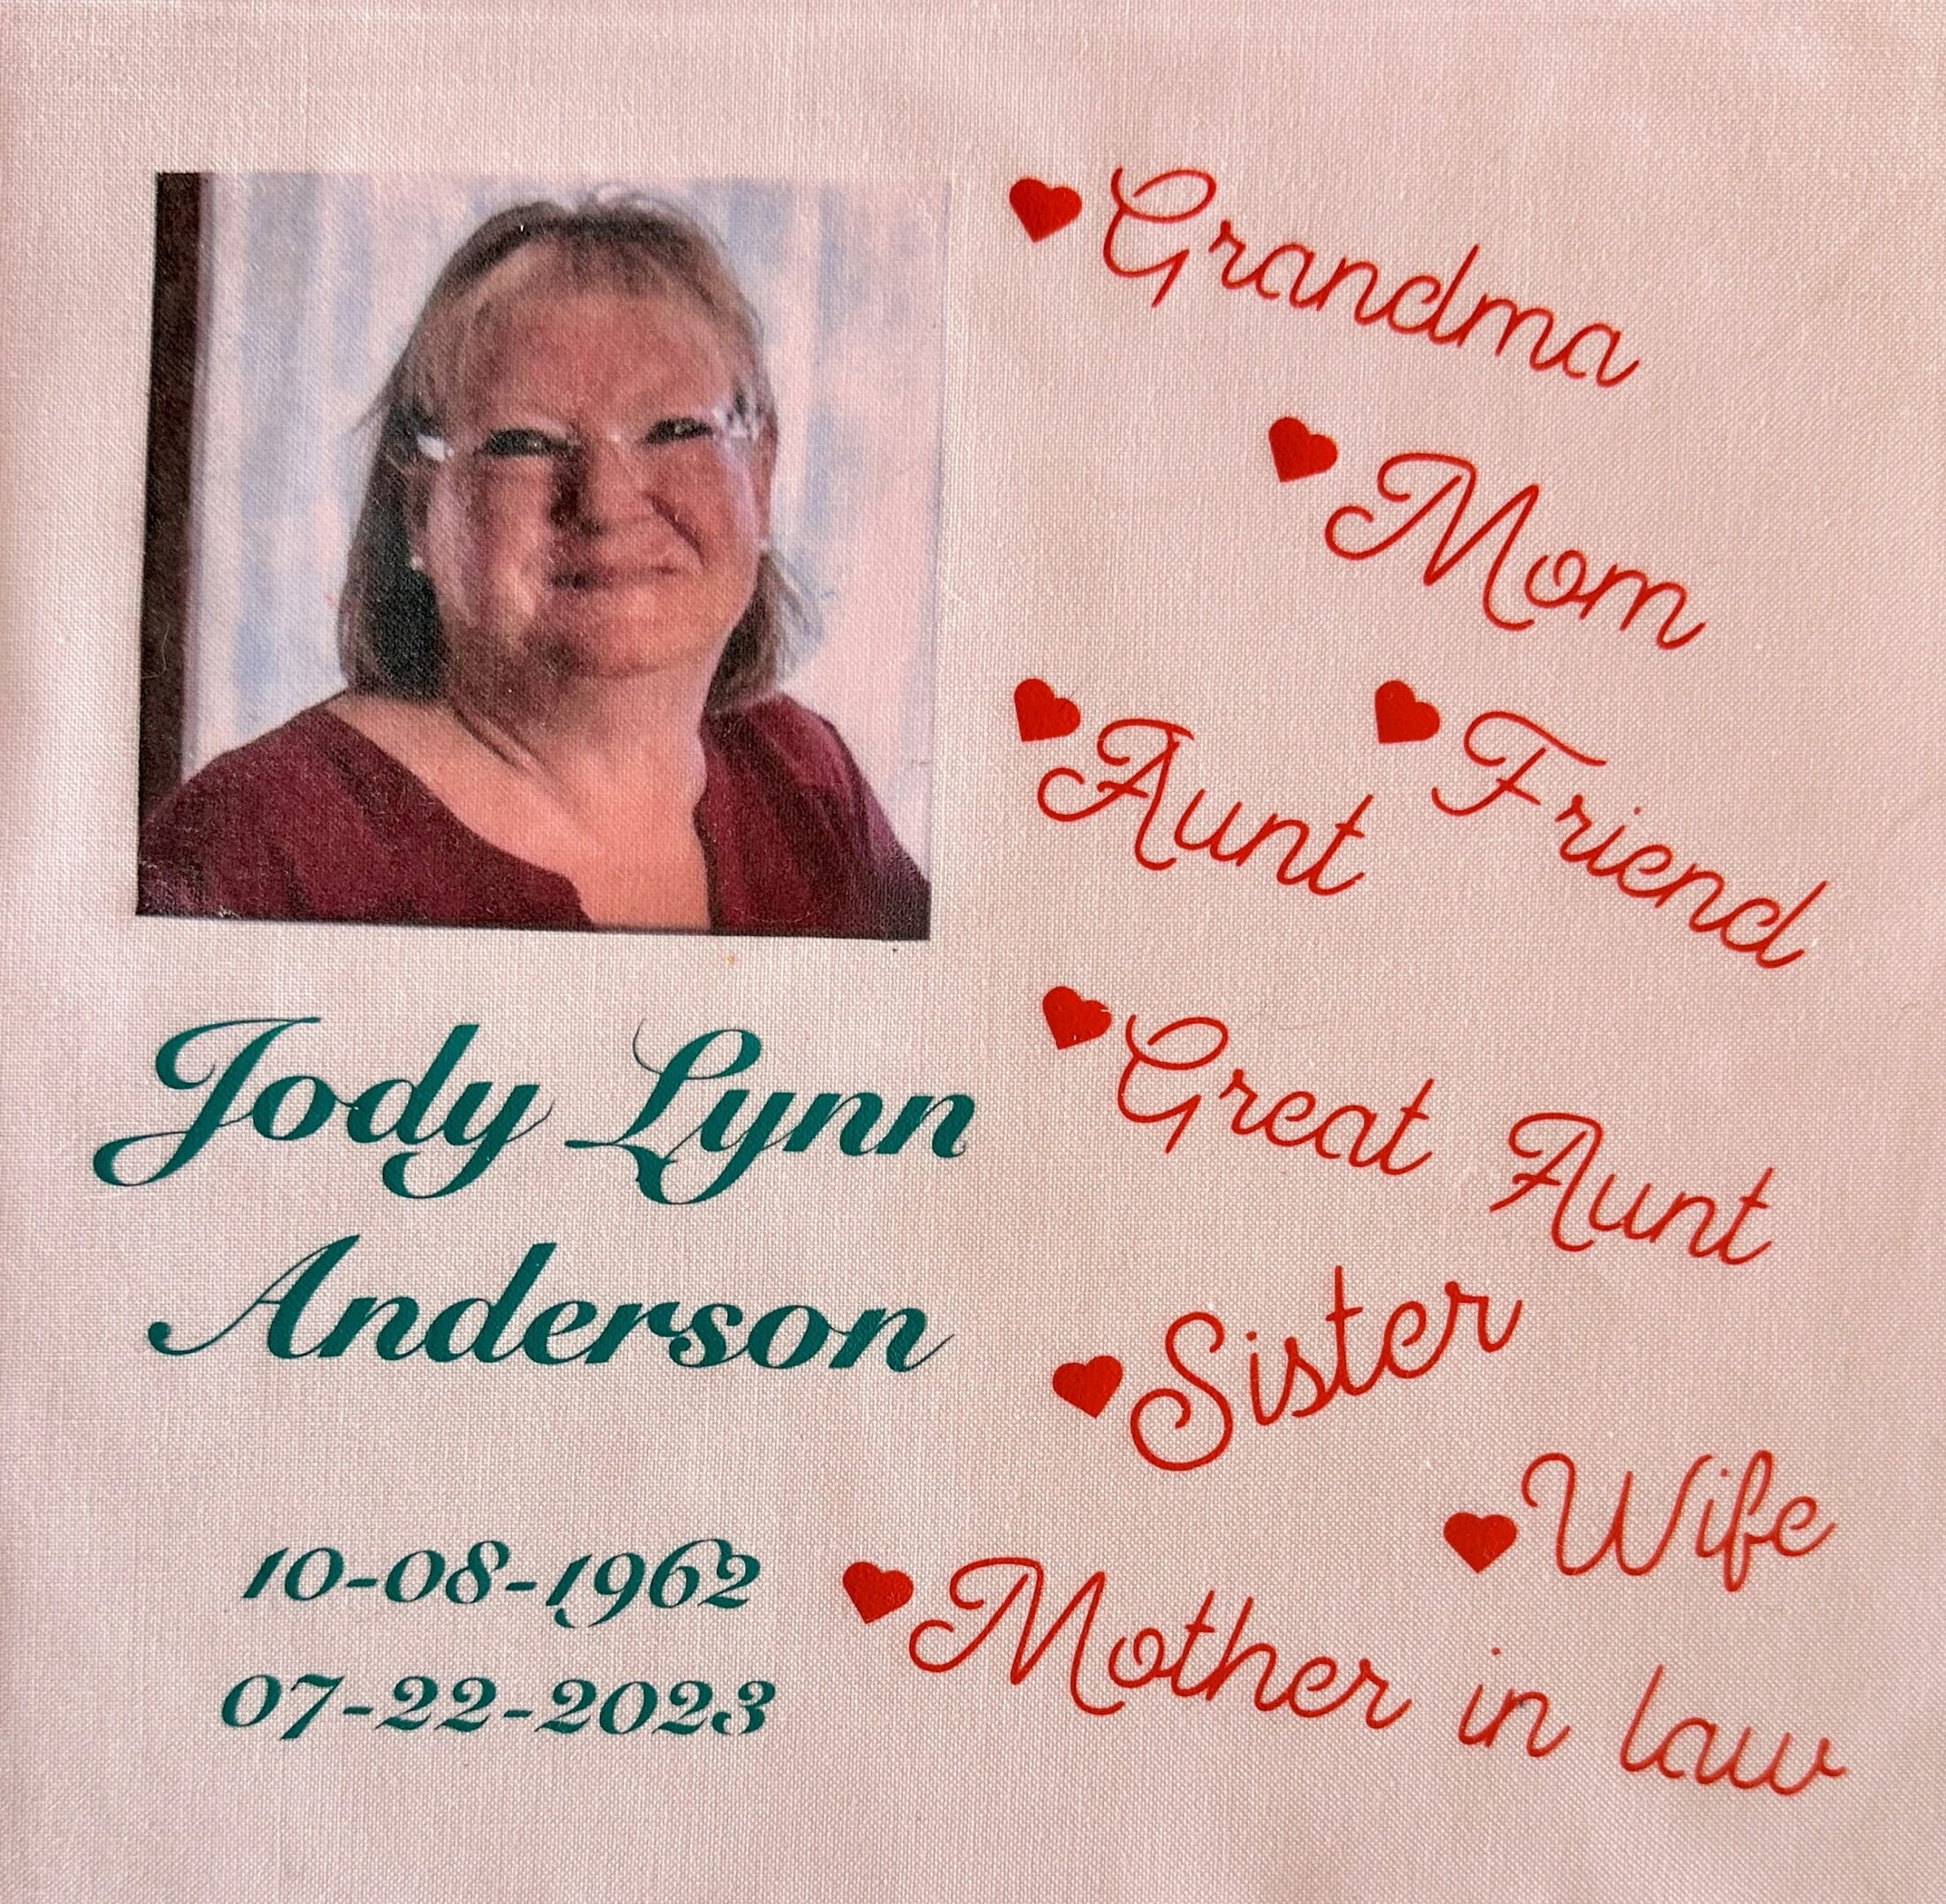 Jody Lynn
Anderson
10-08-1962
07-22-2023
Grandma
Mom
Aunt
Friend
Great Aunt
Sister
Wife
Mother in law